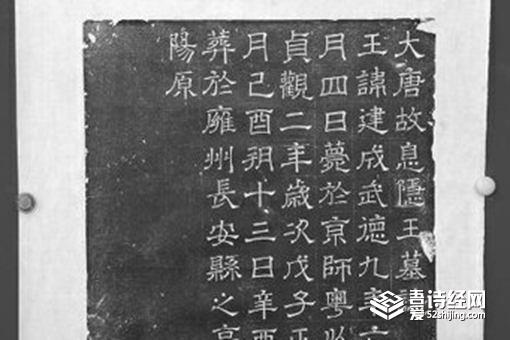 大唐故息隱王墓
王諱建成武德九年六
月四日薨於京師粵以
貞觀二年歲次戊子正
月己酉朔十三日辛酉
葬於雍州長安縣之高
陽原
吾爱诗经网
52shijing.com